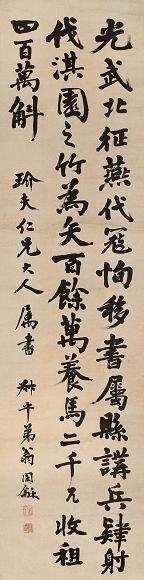 光武北征燕代寇恂移書屬縣講兵肄射
伐淇園之竹為矢百餘萬養馬二千匹收租
四百萬斛
瑜夫仁兄大人屬書
叔平弟翁同龢